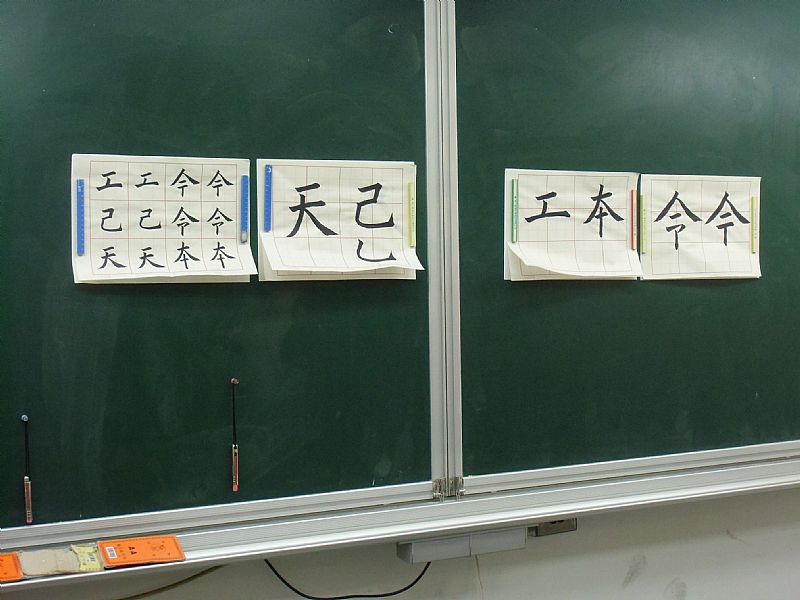 工 工 令 令
己 己 令 令
天 天 本 本
天 己
工 本
令 令
AA